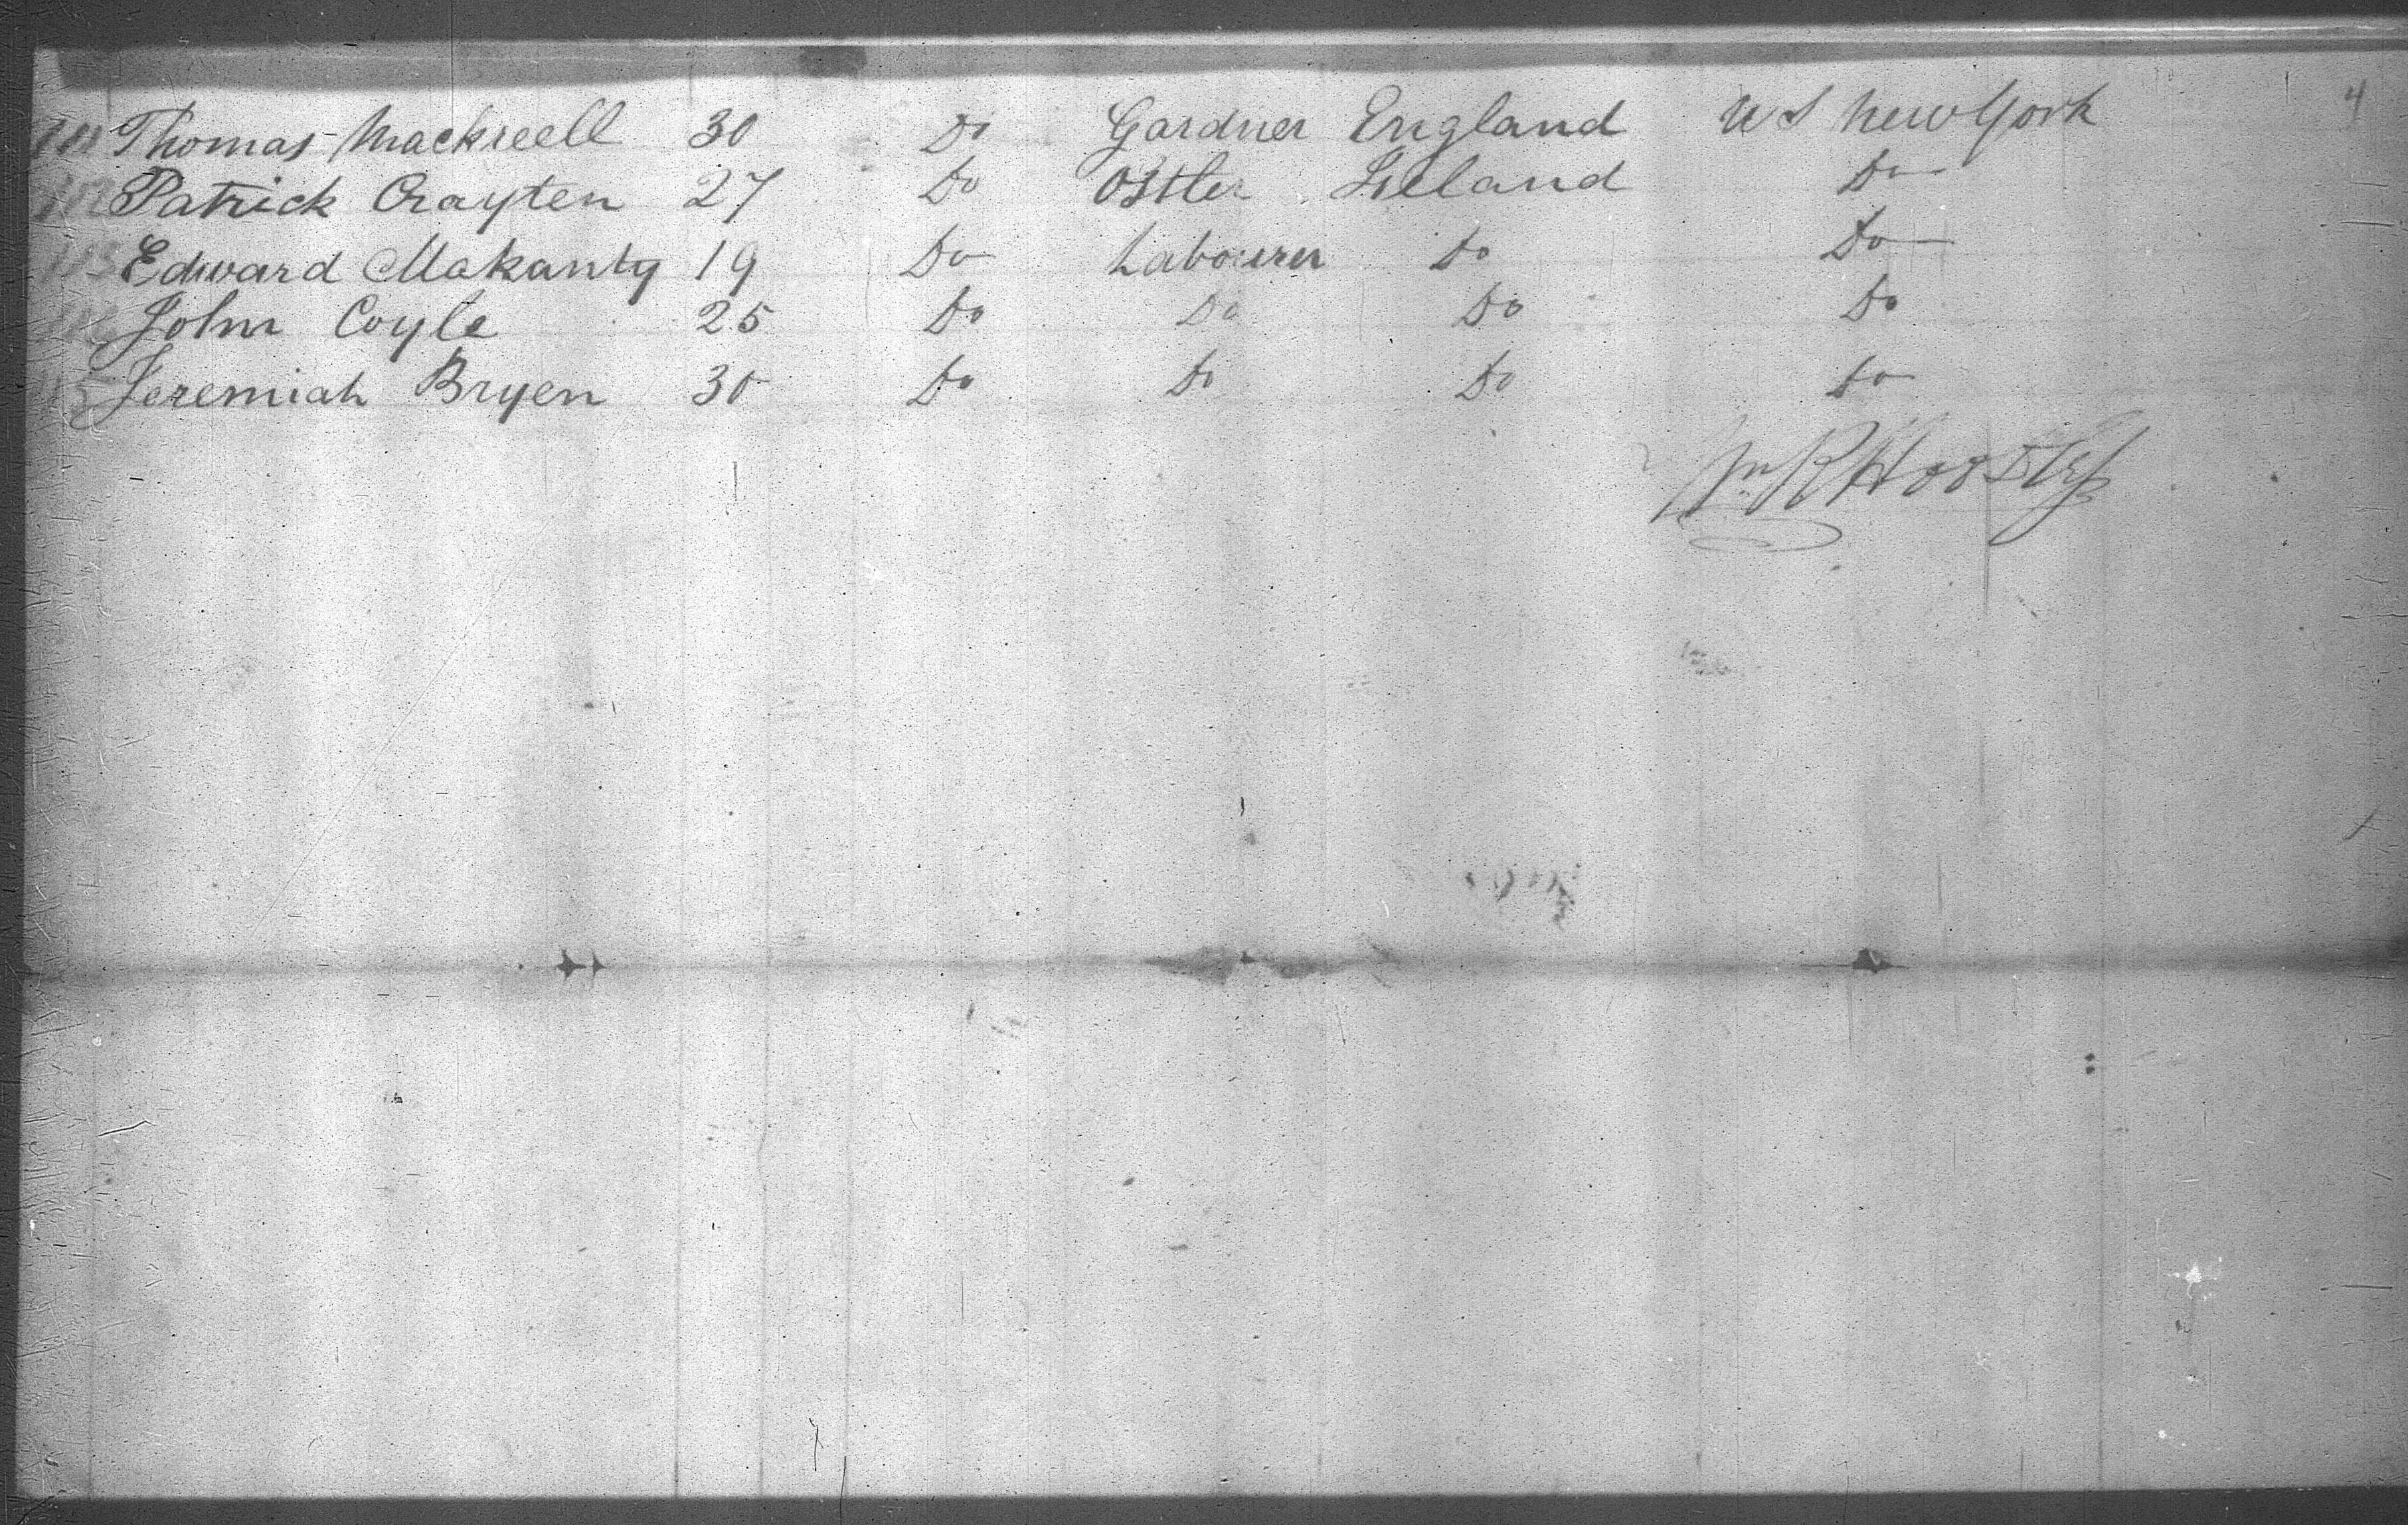 101 Thomas Mackreell 30 Do Gardner England U S New York 4
102 Patrick Crayten 27 Do Ostler Ireland Do
103 Edward Makanty 19 Do Labourer Do Do
John Coyle 25 Do Do Do Do
Jeremiah Bryen 30 Do Do Do Do